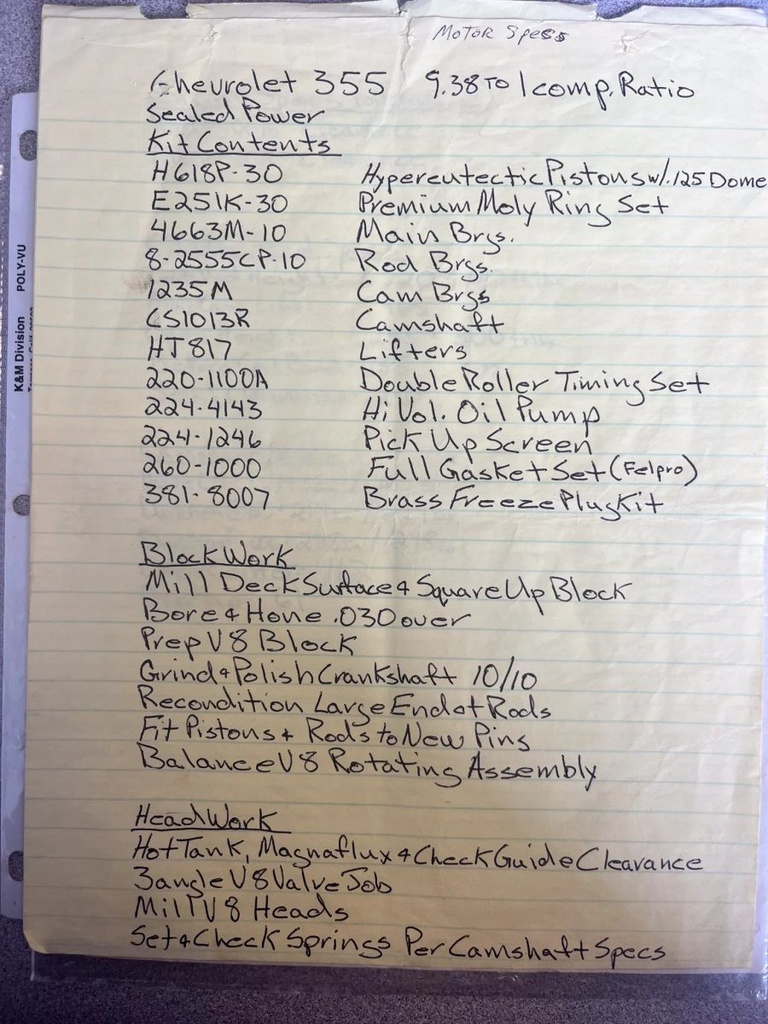 Motor Specs
Chevrolet 355 9.38 to 1 comp. Ratio
Sealed Power
Kit Contents
H618P-30 Hypereutectic Pistons w/.125 Dome
E251K-30 Premium Moly Ring Set
4663M-10 Main Brgs.
8-2555CP-10 Rod Brgs.
1235M Cam Brgs
CS1013R Camshaft
HT817 Lifters
220-1100A Double Roller Timing Set
224-4143 Hi Vol. Oil Pump
224-1246 Pick Up Screen
260-1000 Full Gasket Set (Felpro)
381-8007 Brass Freeze Plug Kit
Block Work
Mill Deck Surface & Square Up Block
Bore & Hone .030 over
Prep V8 Block
Grind & Polish Crankshaft 10/10
Recondition Large End of Rods
Fit Pistons & Rods to New Pins
Balance V8 Rotating Assembly
Head Work
Hot Tank, Magnaflux & Check Guide Clearance
3 angle V8 Valve Job
Mill V8 Heads
Set & Check Springs Per Camshaft Specs
K&M Division POLY-VU